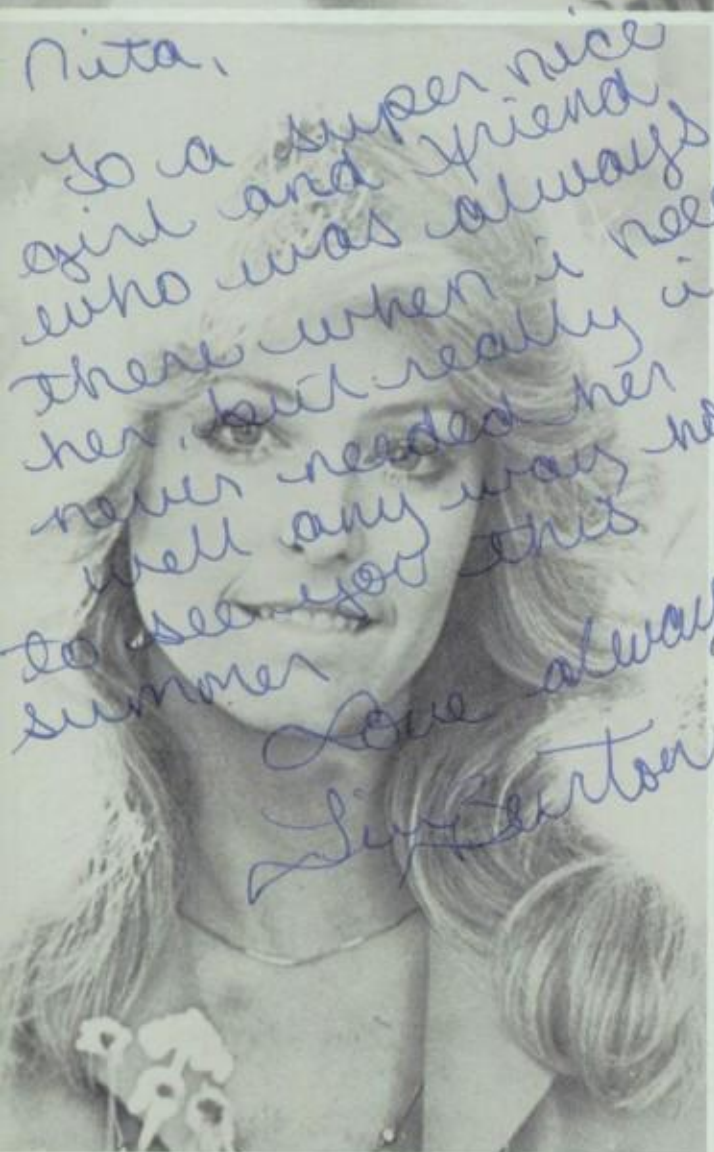 Nita,
To a super nice
girl and friend
who was always
there when i
her, but really i
never needed her
well any way
to see you this
summer
Love always
Burton